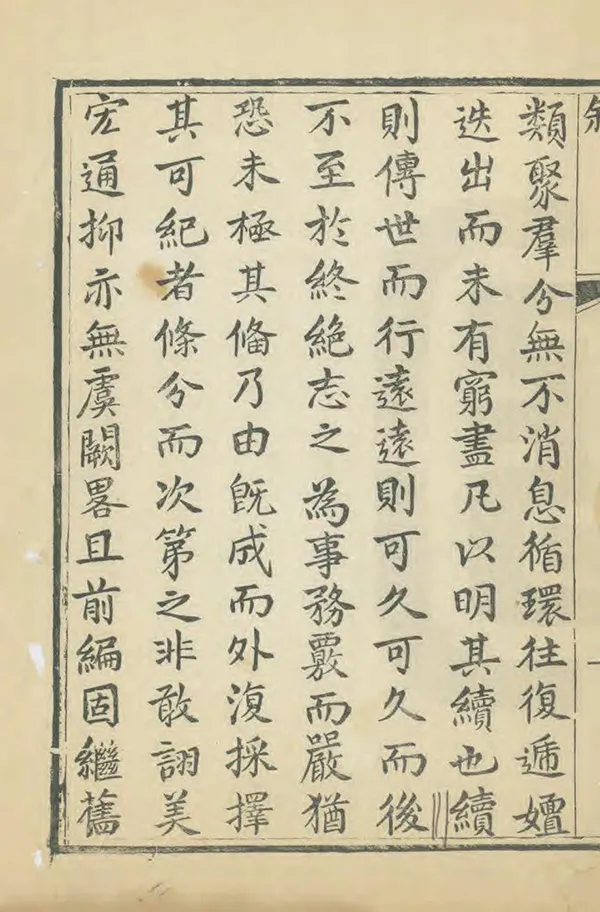 類聚羣分無不消息循環往復遞嬗
迭出而未有窮盡凡以明其續也續
則傳世而行遠遠則可久可久而後
不至於終絶志之為事務覈而嚴猶
恐未極其偹乃由旣成而外復採擇
其可紀者條分而次第之非敢詡美
宏通抑亦無虞闕畧且前編固繼舊